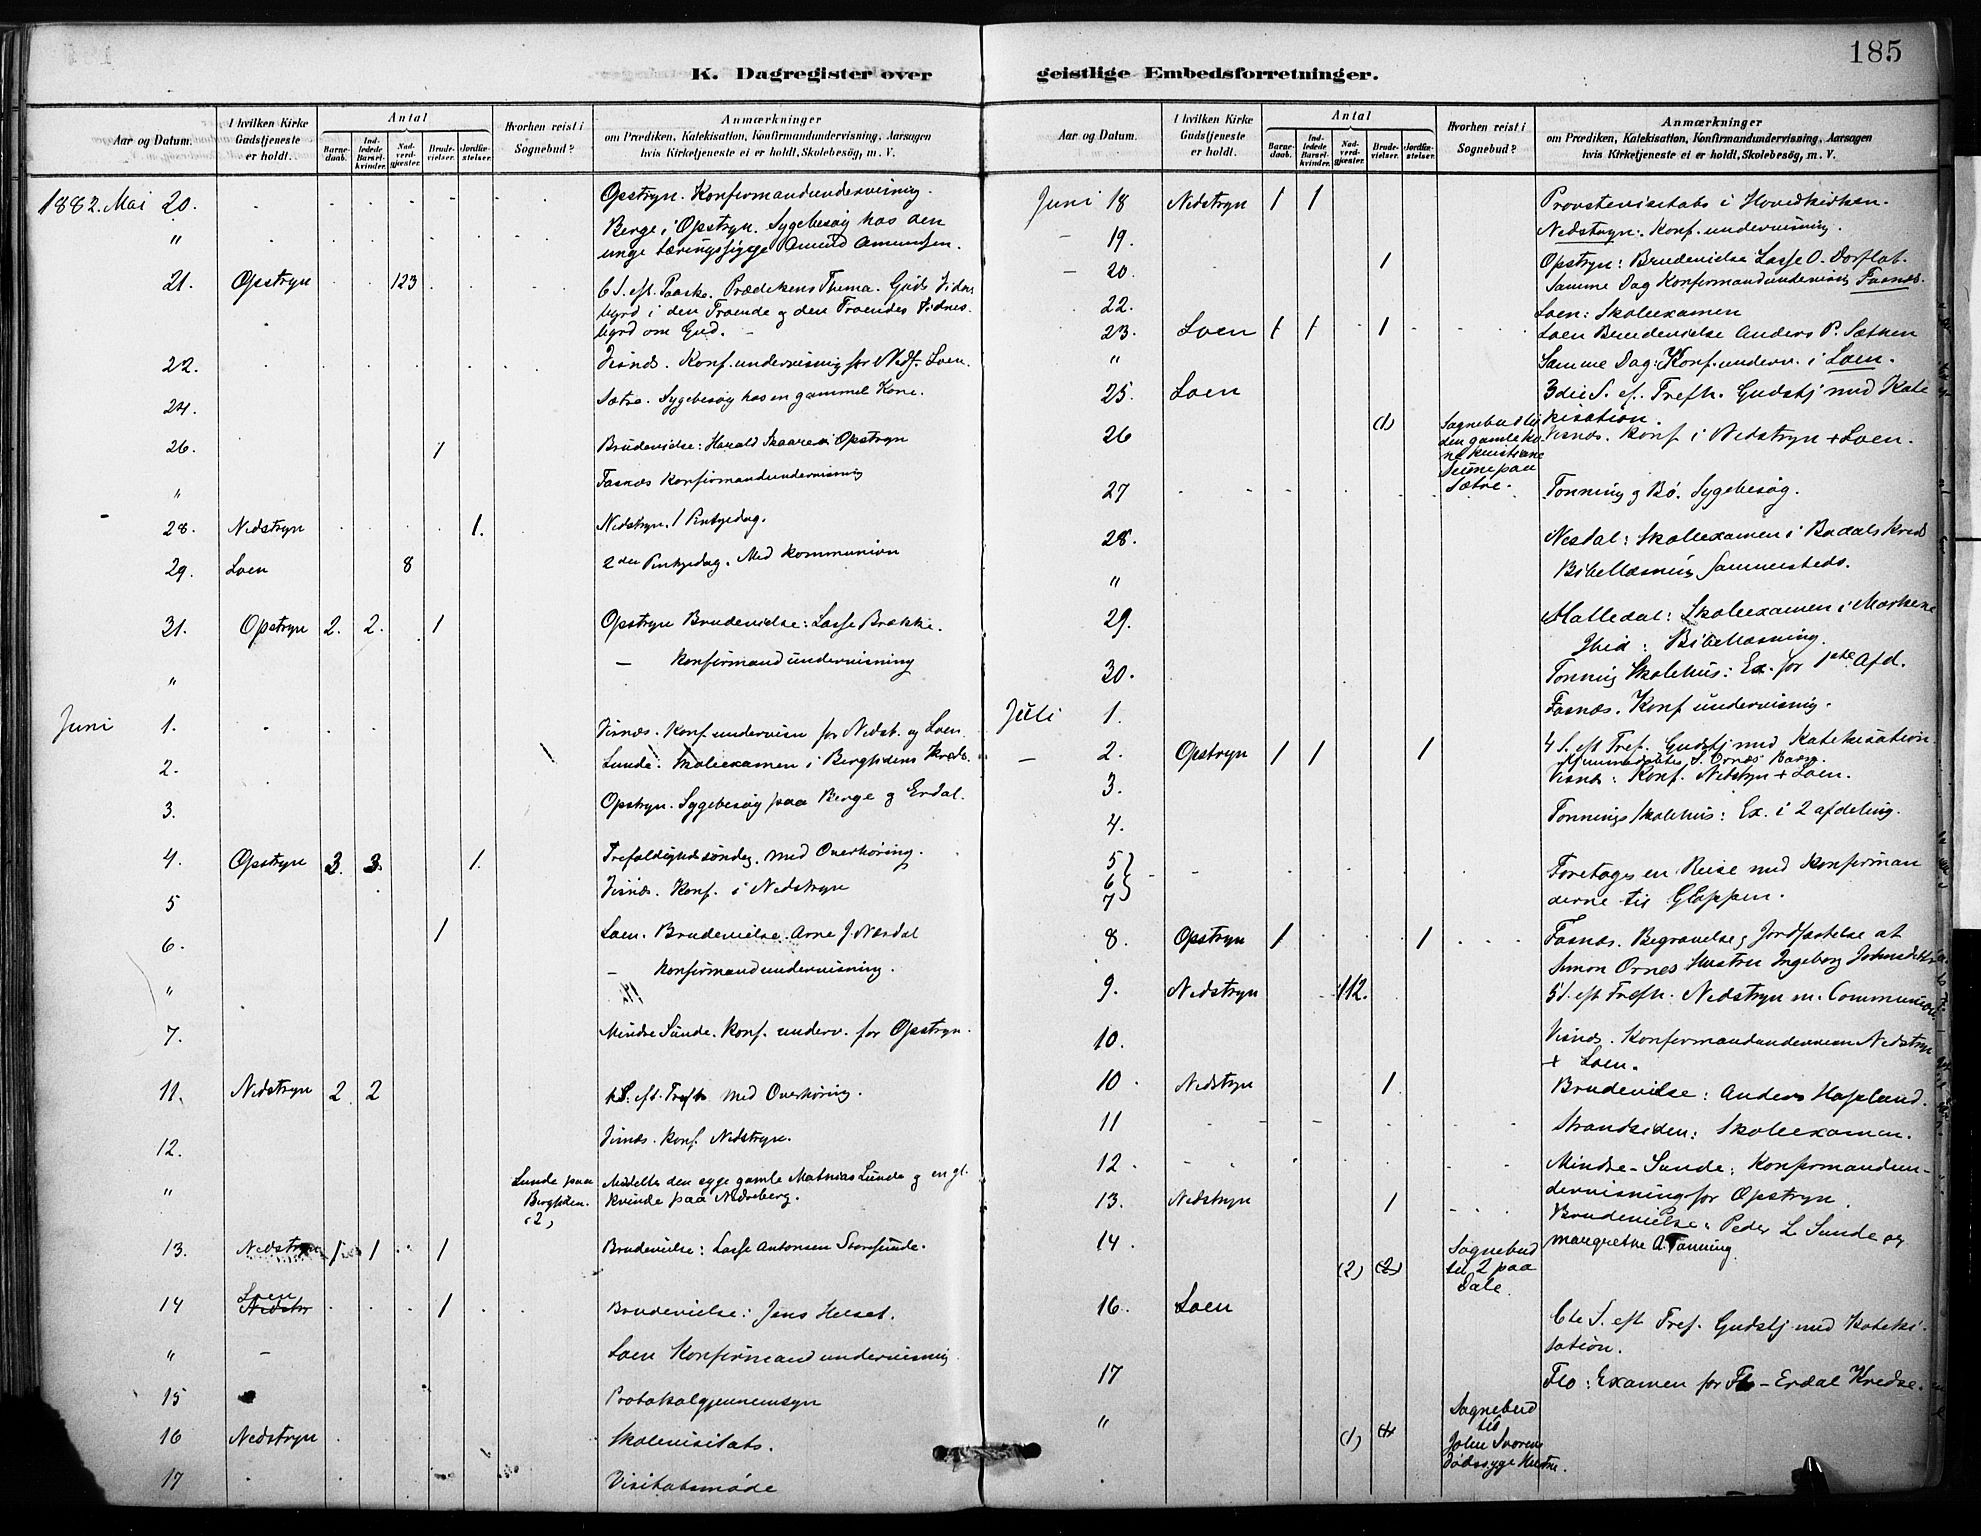 185
K. Dagregister over
Aar og Datum.
I hvilken Kirke Gudstjeneste er holdt.
Antal
Barne-daab.
Ind-ledede Barsel-kvinder.
Nad-verd-gjester.
Brude-vielser.
Jordfæ-stelser.
Hvorhen reist i Sognebud?
Anmærkninger
om Prædiken, Katekisation, Konfirmandundervisning, Aarsagen
hvis Kirketjeneste ei er holdt, Skolebesög, m. V.
1882. Mai 20. Opstryn. Konfirmandundervisning.
" Berge i Opstryn. Sygebesøg hos den
unge tæringssyge Amund Amundsen.
21. Opstryn 123 6 S. eft. Paaske. Prædikens Thema. Guds Vidnes
byrd i den Troende og den Troendes Vidnes
byrd om Gud.
22. Visnæs. Konf. undervisning for Nedf. Loen.
24. Sætre. Sygebesøg hos en gammel Kone.
26. 1 Brudevielse: Harald Skaare i Opstryn
" Fasnæs Konfirmandundervisning
28. Nedstryn 1. Nedstryn. 1 Pintsedag.
29. Loen 8 2den Pintsedag. Med Kommunion
31. Opstryn 2. 2. 1 Opstryn Brudevielse: Lasse Brække.
" — Konfirmandundervisning
Juni 1. Visnæs. Konf. undervisn for Nedst. og Loen.
2. Sunde. Skoleexamen i Berglidens Kreds.
3. Opstryn. Sygebesøg paa Berge og Erdal.
4. Opstryn 3. 3. 1. Trefoldighedssøndag. med Overhøring.
5 Visnæs. Konf. i Nedstryn
6. 1 Loen. Brudevielse. Arne J. Næsdal
" — Konfirmandundervisning.
7. Mindre Sunde. Konf. underv. for Opstryn.
11. Nedstryn 2 2 1 S. eft. Trefh med Overhøring.
12. Visnæs. Konf. Nedstryn.
" Sunde paa
Bergliden.
(2)
den syge gamle Mathias Sunde og en gl.
Kvinde paa Nedreberg.
13. Nedstryn 1 1 1 Brudevielse: Lasse Antonsen Storesunde.
14 Loen
Nedstr 1 Brudevielse: Jens Helset.
" — Loen Konfirmandundervisning
15 Protokolgjennemsyn
16 Nedstryn Skolevisitats.
17 Visitatsmøde
geistlige Embedsforretninger.
Aar og Datum.
I hvilken Kirke Gudstjeneste er holdt.
Antal
Barne-daab.
Ind-ledede Barsel-kvinder.
Nad-verd-gjester.
Brude-vielser.
Jordfæ-stelser.
Hvorhen reist i Sognebud?
Anmærkninger
om Prædiken, Katekisation, Konfirmandundervisning, Aarsagen
hvis Kirketjeneste ei er holdt, Skolebesög, m. V.
Juni 18 Nedstryn 1 1 Provstevisitats i Hovedkirken.
— 19. Nedstryn. Konf. undervisning.
— 20. 1 Opstryn: Brudevielse Lasse O. Dorflot.
Samme Dag Konfirmandundervisn Fasnæs.
22. Loen: Skoleexamen
23. Loen 1 1 1 Loen Brudevielse Anders P. Sæthen
" Samme Dag: Konf. underv. i Loen.
25. Loen 3die S. ef. Trefh. Gudstj med Kate
kisation.
26 (1) Visnæs. Konf i Nedstryn + Loen.
Sognebud til
den gamle Ko
ne
paa
Sætre.
27 Tonning og Bø. Sygebesøg.
28. Nesdal: Skoleexamen i Bødals Kreds
" Bibellæsning sammesteds.
29. Skoleexamen i
Ibid: Bibellæsning.
30. Tonning Skolehus: Ex. for 1ste Afd.
Juli 1. Fasnæs. Konf undervisning.
— 2. Opstryn 1 1 1 4 S. eft Tref. Gudstj med Katekisation.
S. Ornæs Barn.
3. Visnæs: Konf. Nedstryn + Loen.
4. Tonnings Skolehus: Ex. i 2 afdeling.
5
6
7
Foretages en Reise med Konfirman
derne til Gloppen.
8. Opstryn 1 1 Fasnæs. Begravelse og Jordfæstelse af
Simon Ornes Hustru Ingeborg
9. Nedstryn 112. 5 S. eft Trefh. Nedstryn m. Communion.
10. Visnæs. Konfirmandundervisn Nedstryn
+ Loen.
10. Nedstryn 1 Brudevielse: Anders Hopland.
11 Strandsiden: Skoleexamen.
12. Mindre-Sunde: Konfirmandun-
dervisning for Opstryn.
13. Nedstryn 1 Brudevielse: Peder L. Sunde og
Margrethe A. Tonning.
14. (2) (2) Sognebud
til 2 paa
Dale.
16. Loen 6te S. eft Tref. Gudstj med Kateki-
sation.
17 Flo: Examen for Flo-Erdal Kredse.
" (1) (1) Sognebud
til
John
dødssyge Hustru.